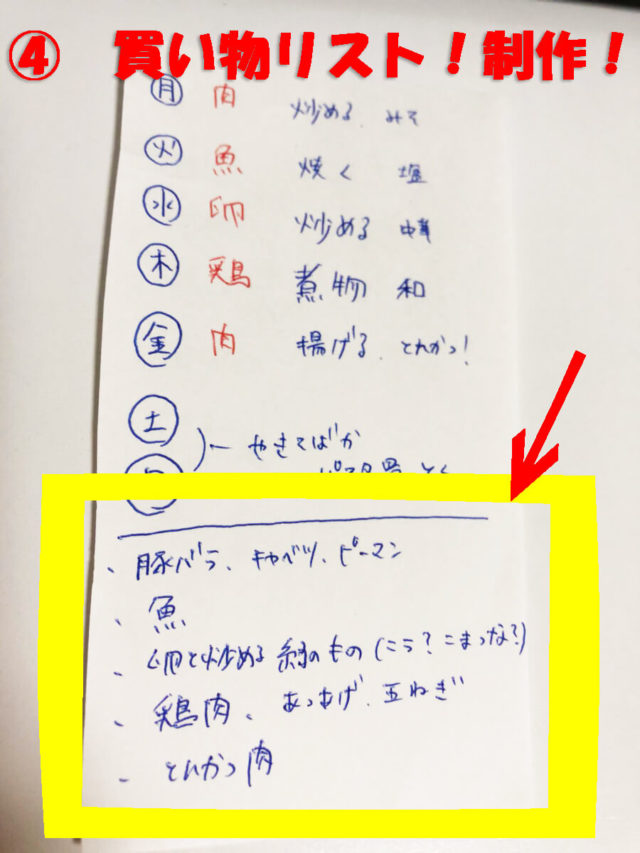 ④ 買い物リスト！制作！
月 肉 炒める、みそ
火 魚 焼く 塩
水 卵 炒める 中華
木 鶏 煮物 和
金 肉 揚げる、とんかつ！
土 やきそばか
・豚バラ、キャベツ、ピーマン
・魚
・卵と炒める 緑のもの（ニラ？こまつな？）
・鶏肉、あつあげ、玉ねぎ
・とんかつ肉